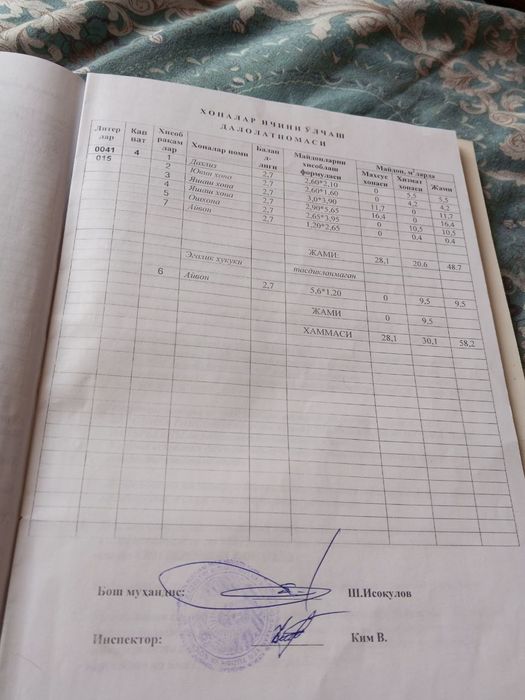 ХОНАЛАР ИЧИНИ ЎЛЧАШ
ДАЛОЛАТНОМАСИ
Литер лар Қав ват Хисоб рақам лар Хоналар номи Балан д- лиги Майдонларни хисоблаш формуласи Майдон, м² ларда
Махсус хонаси Хизмат хонаси Жами
0041 4 1 Дахлиз 2,7 2,60*2,10 0 5,5 5,5
015 2 Юван хона 2,7 2,60*1,60 0 4,2 4,2
3 Яшаш хона 2,7 3,0*3,90 11,7 0 11,7
4 Яшаш хона 2,7 2,90*5,65 16,4 0 16,4
5 Ошхона 2,7 2,65*3,95 0 10,5 10,5
7 Айвон 2,7 1,20*2,65 0 0,4 0,4
ЖАМИ: 28,1 20,6 48,7
Эгалик хукуки тасдикланмаган
6 Айвон 2,7 5,6*1,20 0 9,5 9,5
ЖАМИ 0 9,5
ХАММАСИ 28,1 30,1 58,2
Бош мухандис: Ш.Исокулов
Инспектор: Ким В.